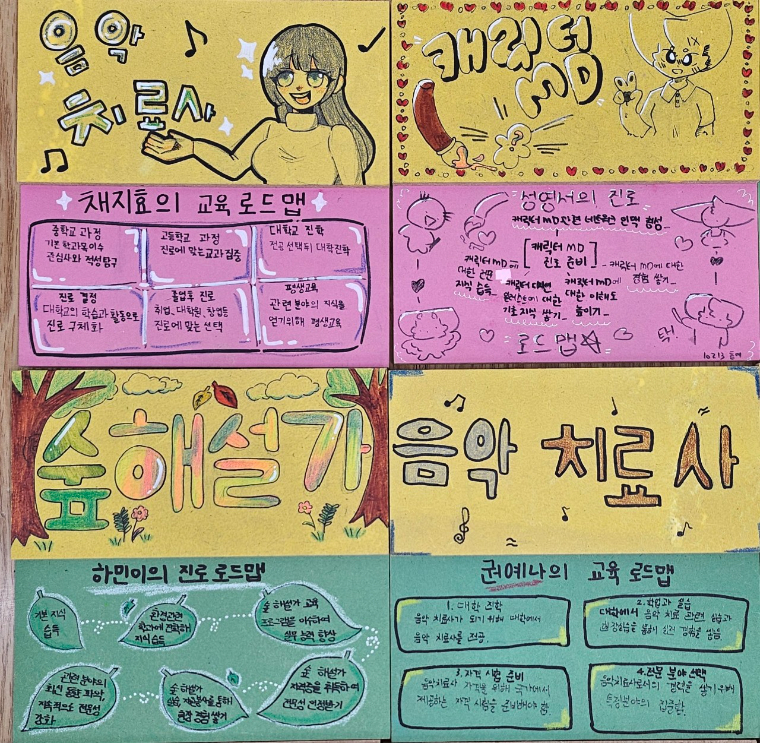 음악
치료사
채지효의 교육 로드맵
중학교 과정
기본 학과목 이수
관심사와 적성 탐구
고등학교 과정
진로에 맞는 교과 집중
대학교 진학
전공 선택 뒤 대학진학
진로 결정
대학교의 학습과 활동으로
진로 구체화
졸업후 진로
취업, 대학원, 창업등
진로에 맞는 선택
평생교육
관련 분야의 지식을
얻기위해 평생교육
캐릭터
MD
성영서의 진로
캐릭터 MD관련 네트워크 인맥 형성
캐릭터 MD
진로 준비
캐릭터 MD에
대한
지식 습득
캐릭터 대한
기초지식 쌓기
대한 이해도
높이기
캐릭터 MD에 대한
경험 쌓기
로드맵
탁!
10213
숲해설가
하민이의 진로 로드맵
기본 지식
습득
환경관련
학과에 진학해
지식습득
숲 해설가 교육
프로그램을 이수하여
실무 능력 향상
숲 해설가
자격증을 취득하여
전문성 인정받기
숲 해설가
통해
현장 경험 쌓기
관련 분야의
최신 동향 파악,
지속적으로 전문성
강화
음악 치료사
권예나의 교육 로드맵
1. 대학 진학
음악 치료사가 되기 위해 대학에서
음악 치료사를 전공.
2. 학업과 실습
대학에서 음악 치료 관련 학습과
현장실습을 통해 실전 경험을 쌓음
3. 자격 시험 준비
음악치료사 자격을 위해 국가에서
제공하는 자격 시험을 준비해야 함.
4. 전문 분야 선택
음악치료사로서의 경력을 쌓기 위해
특정분야의